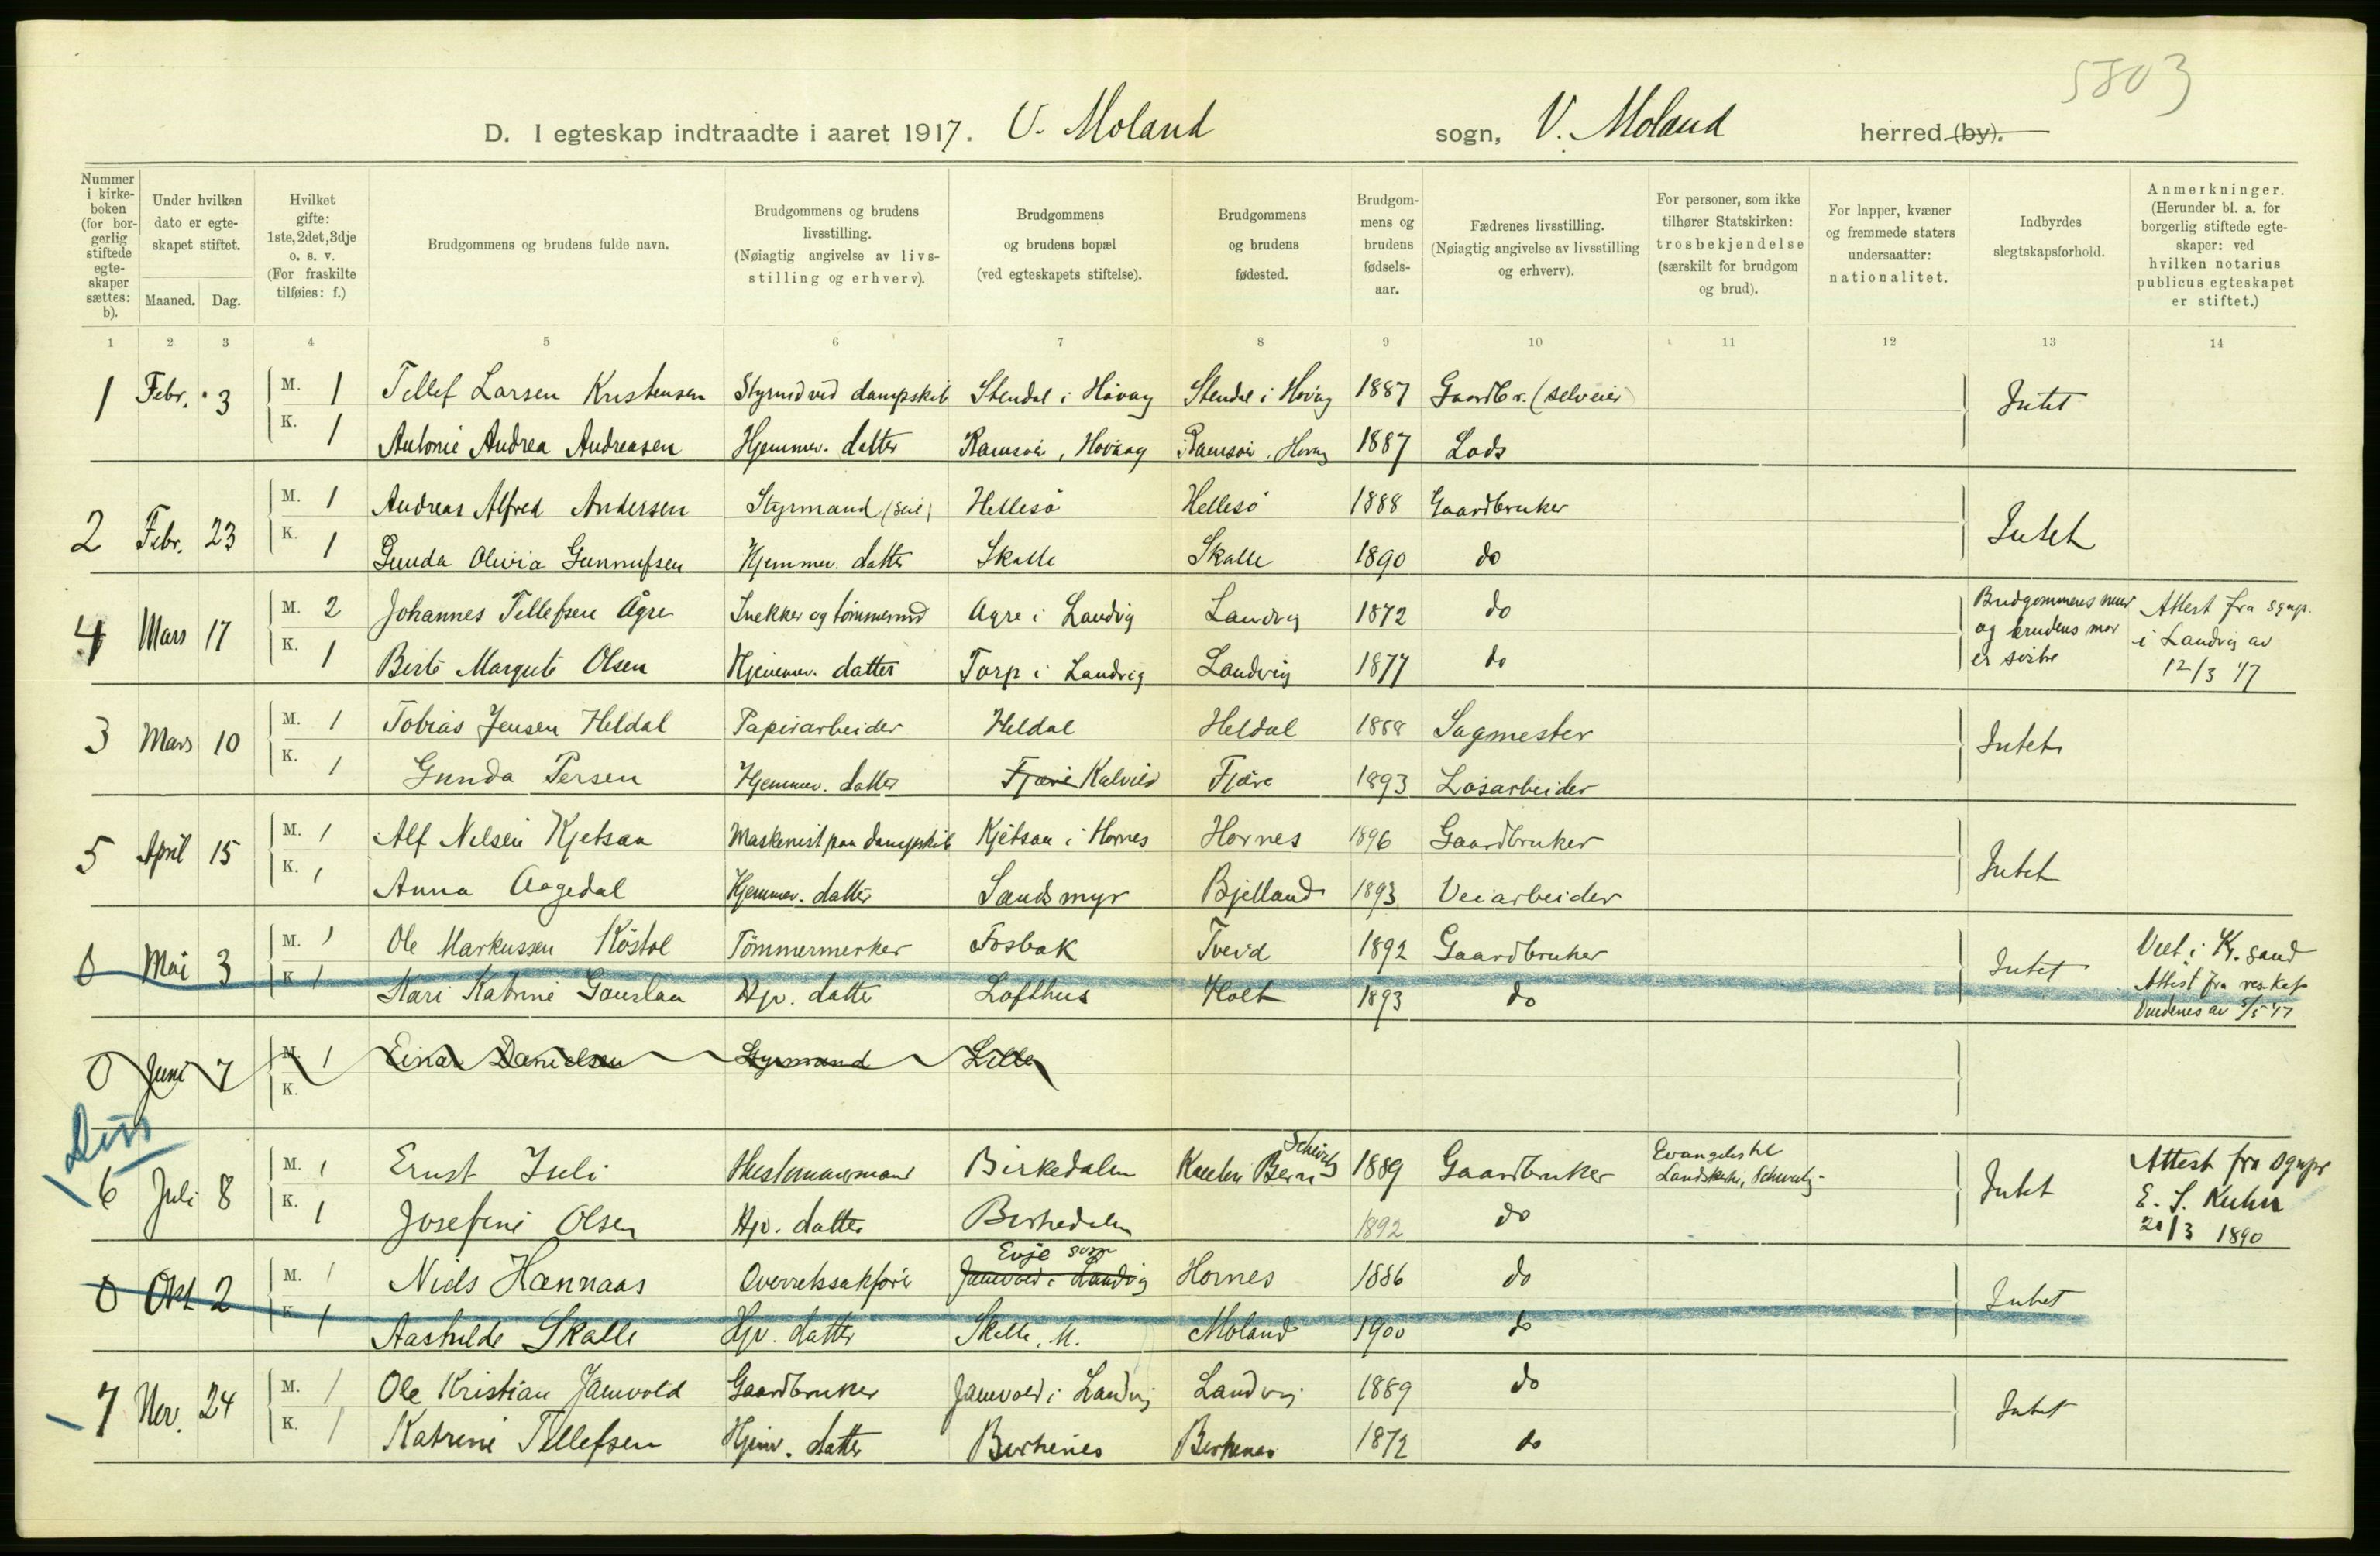 5803
D. I egteskap indtraadte i aaret 1917. V. Moland sogn, V. Moland herred (by).
Nummer i kirke-boken (for bor-gerlig stiftede egte-skaper sættes: b).
Under hvilken dato er egte-skapet stiftet.
Maaned. Dag.
Hvilket gifte: 1ste, 2det, 3dje o. s. v. (For fraskilte tilføies: f.)
Brudgommens og brudens fulde navn.
Brudgommens og brudens livsstilling. (Nøiagtig angivelse av livs-stilling og erhverv).
Brudgommens og brudens bopæl (ved egteskapets stiftelse).
Brudgommens og brudens fødested.
Brudgom-mens og brudens fødsels-aar.
Fædrenes livsstilling. (Nøiagtig angivelse av livsstilling og erhverv).
For personer, som ikke tilhører Statskirken: trosbekjendelse (særskilt for brudgom og brud).
For lapper, kvæner og fremmede staters undersaatter: nationalitet.
Indbyrdes slegtskapsforhold.
Anmerkninger. (Herunder bl. a. for borgerlig stiftede egte-skaper: ved hvilken notarius publicus egteskapet er stiftet.)
1 2 3 4 5 6 7 8 9 10 11 12 13 14
1 Febr. 3 M. 1 Tellef Larsen Kristensen Styrmd ved dampskib Stendal i Høvaag Stendal i Høvåg 1887 Gaardbr. (selveier) Intet
K. 1 Antonie Andrea Andreasen Hjemmev. datter Ramsøi, Høvaag Ramsøi, Høvåg 1887 Lods
2 Febr. 23 M. 1 Andreas Alfred Andersen Styrmand (seil) Hellesø Hellesø 1888 Gaardbruker Intet
K. 1 Gunda Olivia Gunnufsen Hjemmev. datter Skalle Skalle 1890 do
4 Mars 17 M. 2 Johannes Tellefsen Ågre Snekker og tømmermd Agre i Landvig Landvig 1872 do Brudgommens mor og brudens mor er søstre Attest fra sgnpr. i Landvig av 12/3 17
K. 1 Berte Margrete Olsen Hjemmev. datter Torp i Landvig Landvig 1877 do
3 Mars 10 M. 1 Tobias Jensen Heldal Papirarbeider Heldal Heldal 1888 Sagmester Intet
K. 1 Gunda Persen Hjemmev. datter Fjære Kalvild Fjære 1893 Løsarbeider
5 April 15 M. 1 Alf Nelsen Kjetsaa Maskenist paa dampskib Kjetsaa i Hornes Hornes 1896 Gaardbruker Intet
K. 1 Anna Aagedal Hjemmev. datter Sandsmyr Bjelland 1893 Veiarbeider
0 Mai 3 M. 1 Ole Markussen Kåstøl Tømmermerker Fosbæk Tveid 1892 Gaardbruker Intet Viet i Kr. sand Attest fra res. kap
K. 1 Kari Katrine Hjv. datter Lofthus Holt 1893 do av 5/5 17
0 Juni 7 M. 1 Einar Danielsen Styrmand Lille
K.
6 Juli 8 M. 1 Ernst Iseli Birkedalen Kanton Bern Schweitz 1889 Gaardbruker Evangelisk Landskirke, Schweitz Intet Attest fra sgnpr E. S. Kuhn 21/3 1890
K. 1 Josefine Olsen Hjv. datter Birkedalen 1892 do
0 Okt 2 M. 1 Niels Hannaas Overretssakfører Evje sogn Jamvold i Landvig Hornes 1886 do Intet
K. 1 Aashilde Skalle Hjv. datter Skalle, M. Moland 1900 do
7 Nov. 24 M. 1 Ole Kristian Jamvold Gaardbruker Jamvold i Landvig Landvig 1889 do Intet
K. 1 Katrine Tellefsen Hjmv. datter Birkenes Birkenes 1872 do